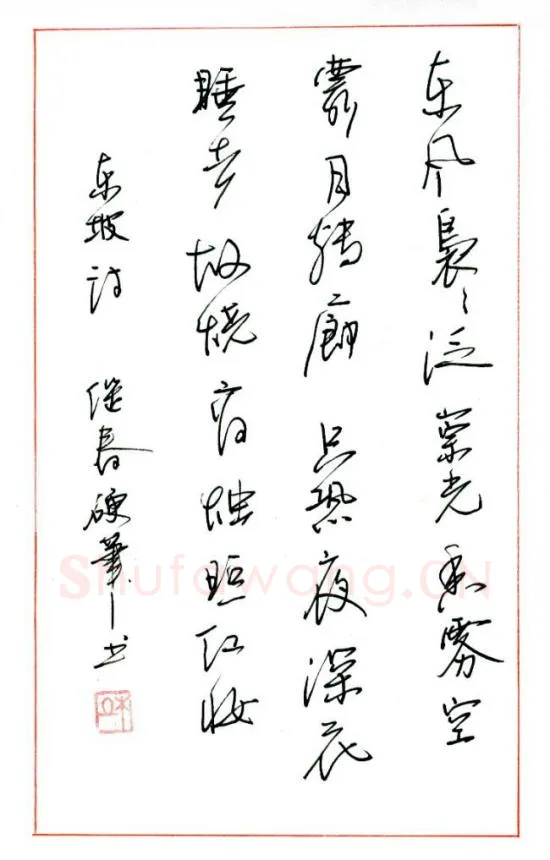 东风裊々泛崇光香雾空
月转廊 只恐夜深花
睡去 故烧高烛照红妆
东坡诗 继春硬笔书
Shufawang.CN